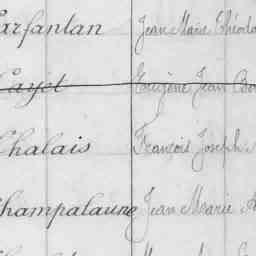 Carfantan Jean Marie Théodo
Cayet Eugène Jean
Chalais François Joseph
Champalaune Jean Marie